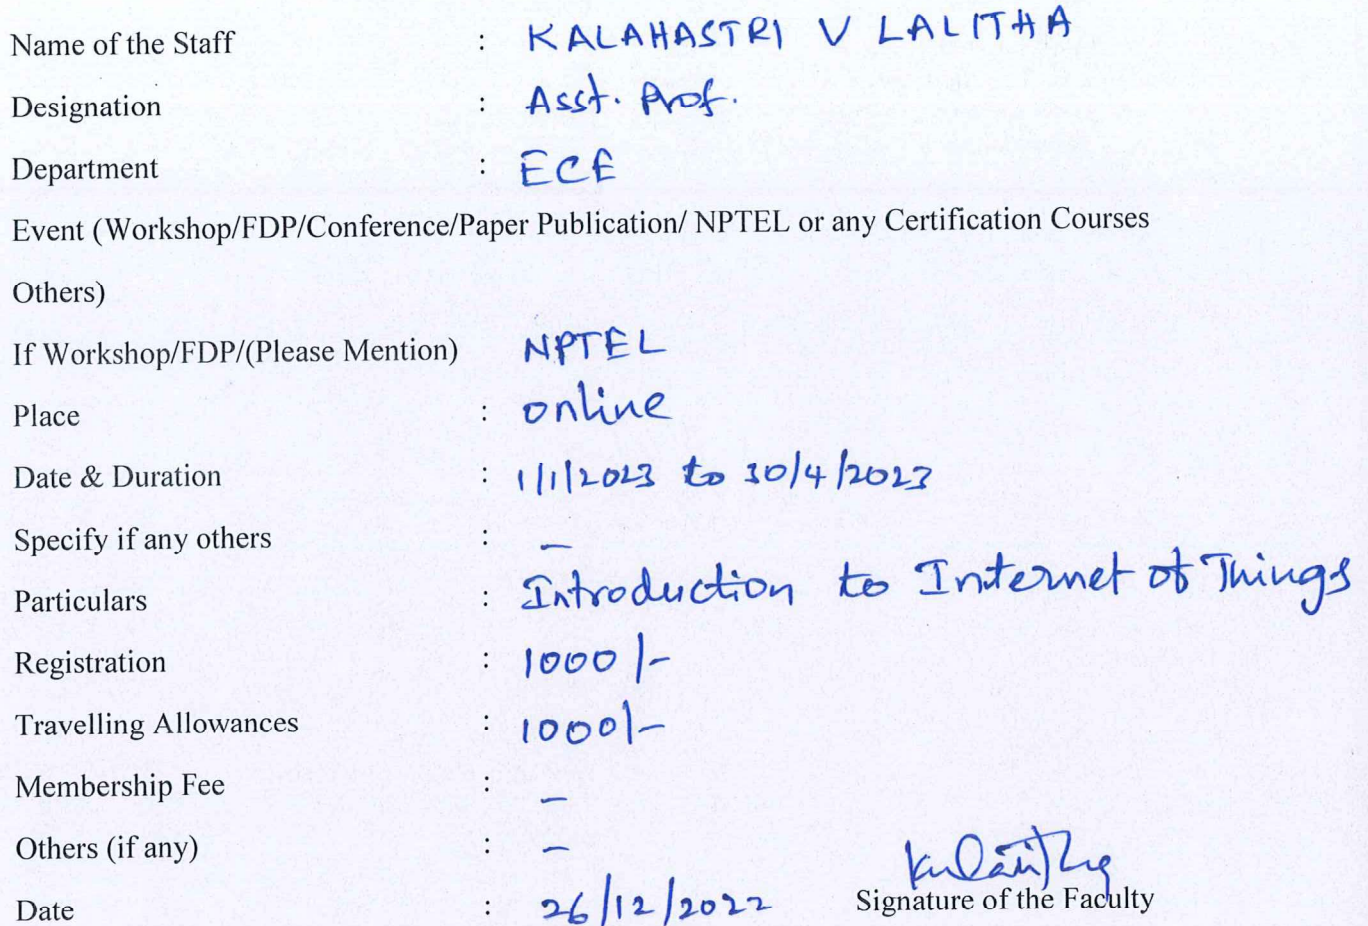 Name of the Staff : KALAHASTRI V LALITHA
Designation : Asst. Prof.
Department : ECE
Event (Workshop/FDP/Conference/Paper Publication/ NPTEL or any Certification Courses
Others)
If Workshop/FDP/(Please Mention) NPTEL
Place : online
Date & Duration : 1/1/2023 to 30/4/2023
Specify if any others : –
Particulars : Introduction to Internet of Things
Registration : 1000/-
Travelling Allowances : 1000/-
Membership Fee : –
Others (if any) : –
Date : 26/12/2022 Signature of the Faculty